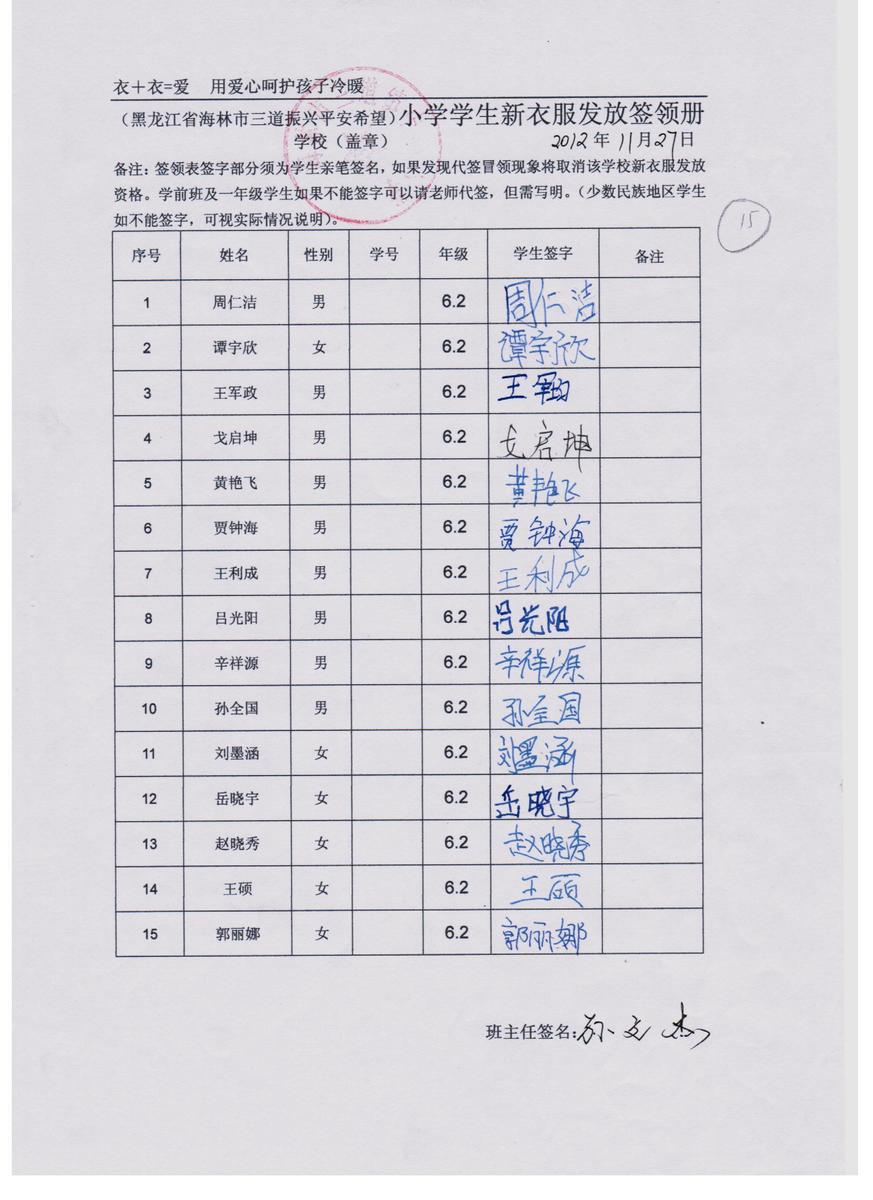 衣＋衣=爱 用爱心呵护孩子冷暖
（黑龙江省海林市三道振兴平安希望）小学学生新衣服发放签领册
学校（盖章） 2012年11月27日
备注：签领表签字部分须为学生亲笔签名，如果发现代签冒领现象将取消该学校新衣服发放
资格。学前班及一年级学生如果不能签字可以请老师代签，但需写明。（少数民族地区学生
如不能签字，可视实际情况说明）。
15
序号 姓名 性别 学号 年级 学生签字 备注
1 周仁洁 男 6.2 周仁洁
2 谭宇欣 女 6.2 谭宇欣
3 王军政 男 6.2 王军政
4 戈启坤 男 6.2 戈启坤
5 黄艳飞 男 6.2 黄艳飞
6 贾钟海 男 6.2 贾钟海
7 王利成 男 6.2 王利成
8 吕光阳 男 6.2 吕光阳
9 辛祥源 男 6.2 辛祥源
10 孙全国 男 6.2 孙全国
11 刘墨涵 女 6.2 刘墨涵
12 岳晓宇 女 6.2 岳晓宇
13 赵晓秀 女 6.2 赵晓秀
14 王硕 女 6.2 王硕
15 郭丽娜 女 6.2 郭丽娜
班主任签名：孙文杰